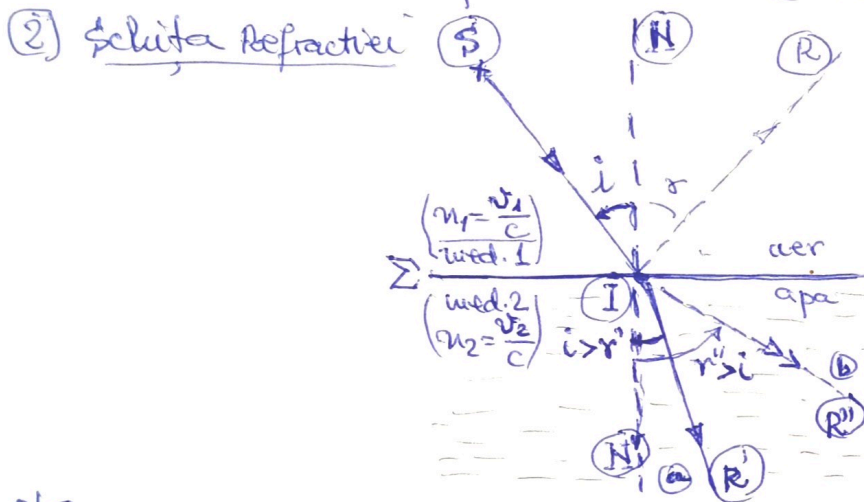 ② Schița Refracției
S N R
i r
n₁ = v₁/c
med. 1
Σ
aer
I
apa
med. 2
n₂ = v₂/c
i > r'
r'' > i
b
R''
N' a R'